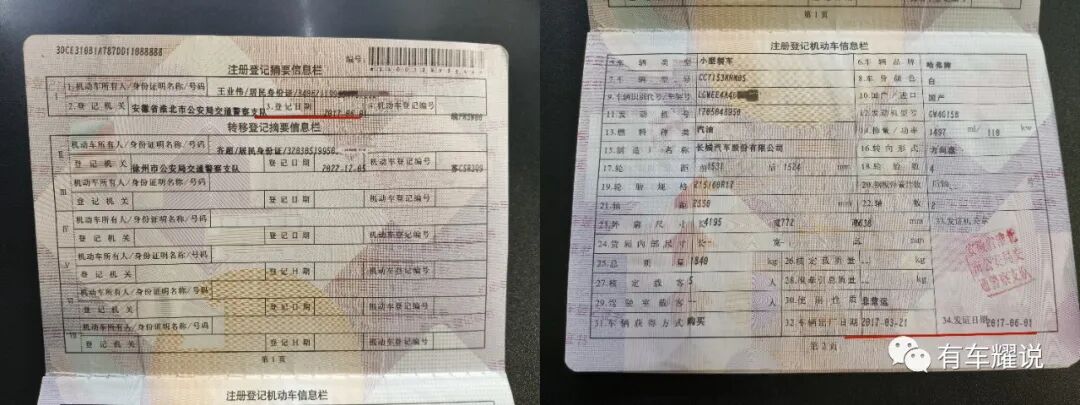 编号:
注册登记摘要信息栏
1.机动车所有人/身份证明名称/号码
王业伟/居民身份证
2.登记机关
安徽省淮北市公安局交通警察支队
3.登记日期
4.机动车登记编号
转移登记摘要信息栏
Ⅱ
机动车所有人/身份证明名称/号码
登记机关
徐州市公安局交通警察支队
登记日期
2022-12-05
机动车登记编号
Ⅲ
机动车所有人/身份证明名称/号码
登记机关
登记日期
机动车登记编号
Ⅳ
机动车所有人/身份证明名称/号码
登记机关
登记日期
机动车登记编号
Ⅴ
机动车所有人/身份证明名称/号码
登记机关
登记日期
机动车登记编号
Ⅵ
机动车所有人/身份证明名称/号码
登记机关
登记日期
机动车登记编号
Ⅶ
机动车所有人/身份证明名称/号码
登记机关
登记日期
机动车登记编号
第1页
注册登记机动车信息栏
第1页
注册登记机动车信息栏
5.车辆类型 小型轿车 6.车辆品牌 哈弗牌
7.车辆型号 8.车身颜色 白
9.车辆识别代号/车架号 10.国产/进口 国产
11.发动机号 12.发动机型号 GW4G15B
13.燃料种类 汽油 14.排量/功率 1497 ml/ 110 kw
15.制造厂名称 长城汽车股份有限公司 16.转向形式 方向盘
17.轮距 前1531 后1524 mm 18.轮胎数 4
19.轮胎规格 20.钢板弹簧片数 后轴
21.轴距 2550 mm 22.轴数 2
23.外廓尺寸 长 4195 宽 高 mm 33.发证机关章
24.货厢内部尺寸 长 宽 高 mm
25.总质量 1840 kg 26.核定载质量 -- kg
27.核定载客 5 人 28.准牵引总质量 -- kg
29.驾驶室载客 -- 人 30.使用性质 非营运
31.车辆获得方式 购买 32.车辆出厂日期 2017-03-21 34.发证日期 2017-06-01
第2页
有车耀说